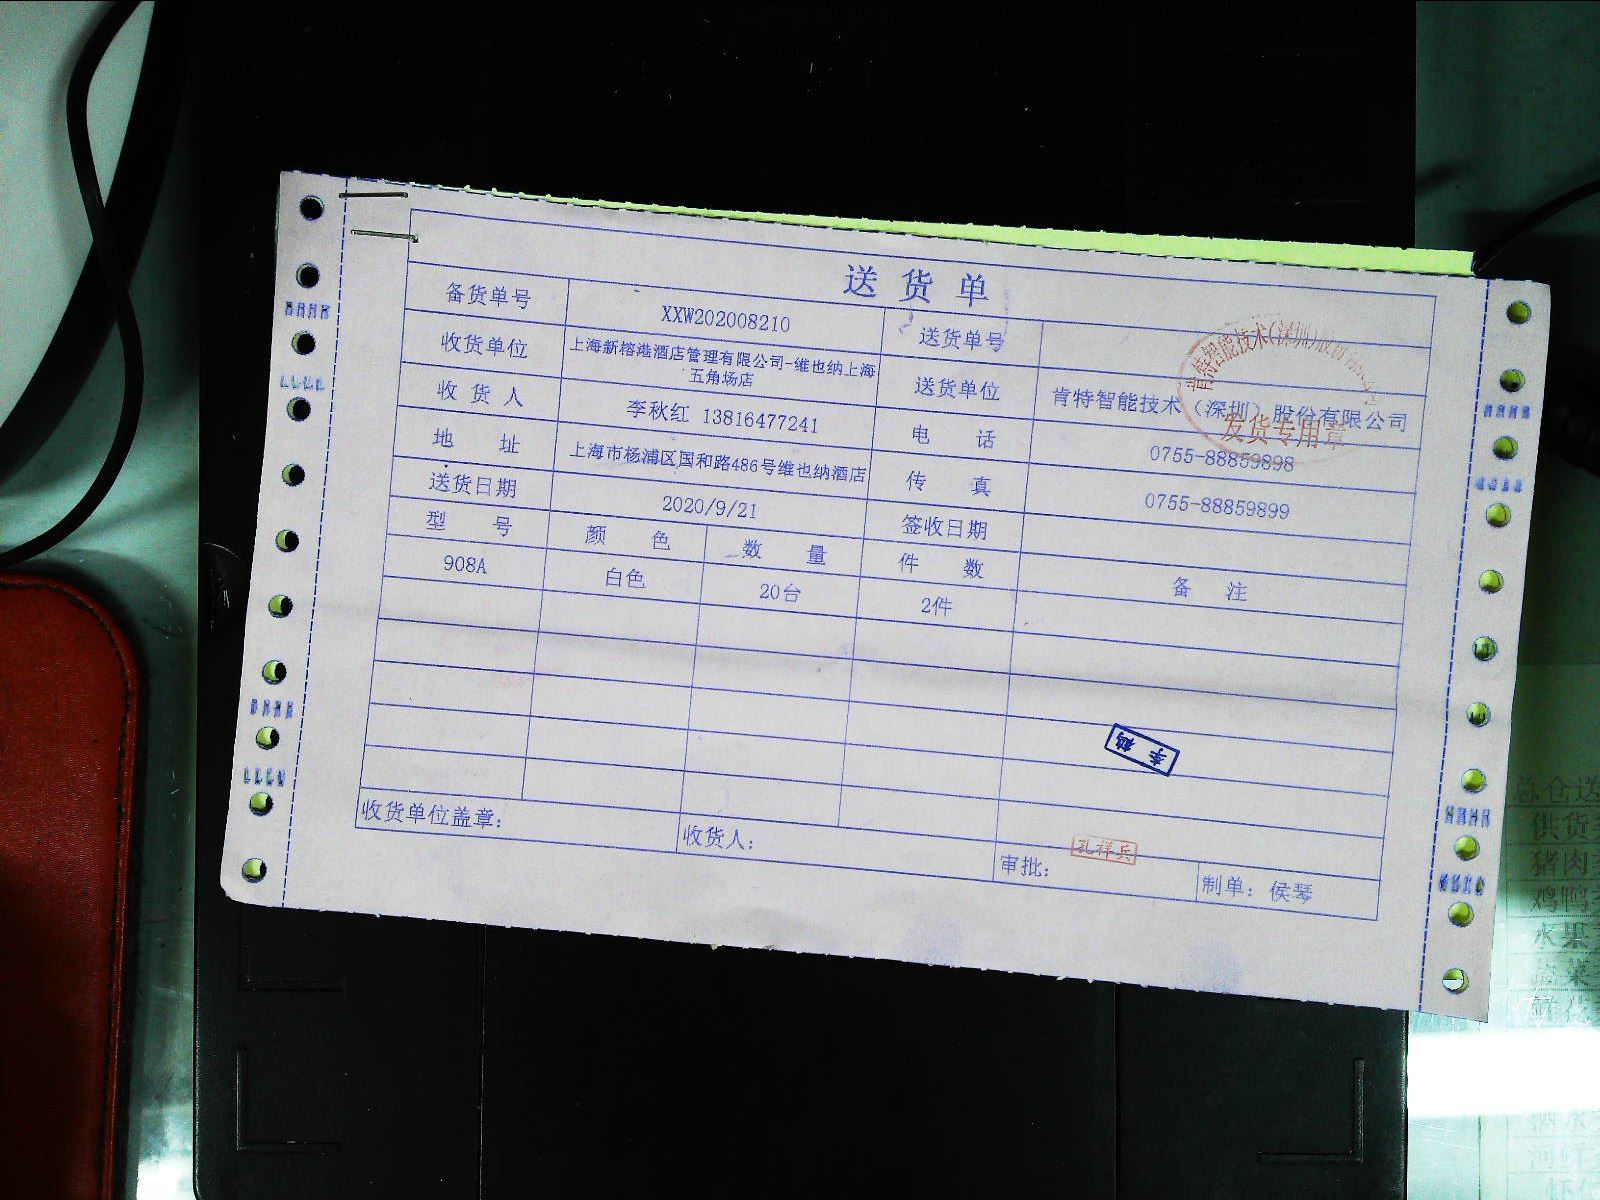 送 货 单
备货单号 XXW202008210 送货单号
收货单位 上海新榕港酒店管理有限公司-维也纳上海五角场店 送货单位 肯特智能技术（深圳）股份有限公司
收 货 人 李秋红 13816477241 电 话 0755-88859898
地 址 上海市杨浦区国和路486号维也纳酒店 传 真 0755-88859899
送货日期 2020/9/21 签收日期
型 号 颜 色 数 量 件 数 备 注
908A 白色 20台 2件
收货单位盖章： 收货人： 审批： 孔祥兵 制单：侯琴
李鹤
肯特智能技术(深圳)
发货专用章
总仓送
供货
猪肉
鸡鸭
水果